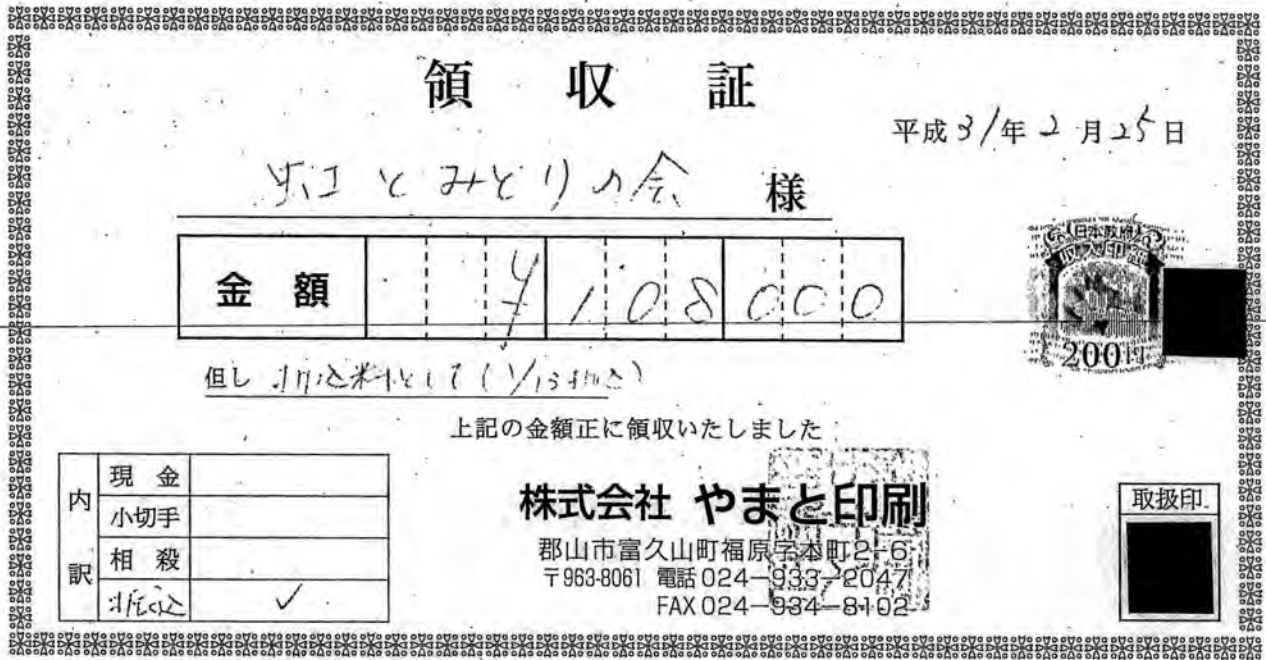 領収証
平成31年2月25日
虹とみどりの会 様
金額 ¥108000
但し 折込料として (1/13折込)
日本政府
収入印紙
200円
上記の金額正に領収いたしました
内訳
現金
小切手
相殺
振込 ✓
株式会社 やまと印刷
郡山市富久山町福原字本町2-6
〒963-8061 電話 024-933-2047
FAX 024-934-8102
取扱印